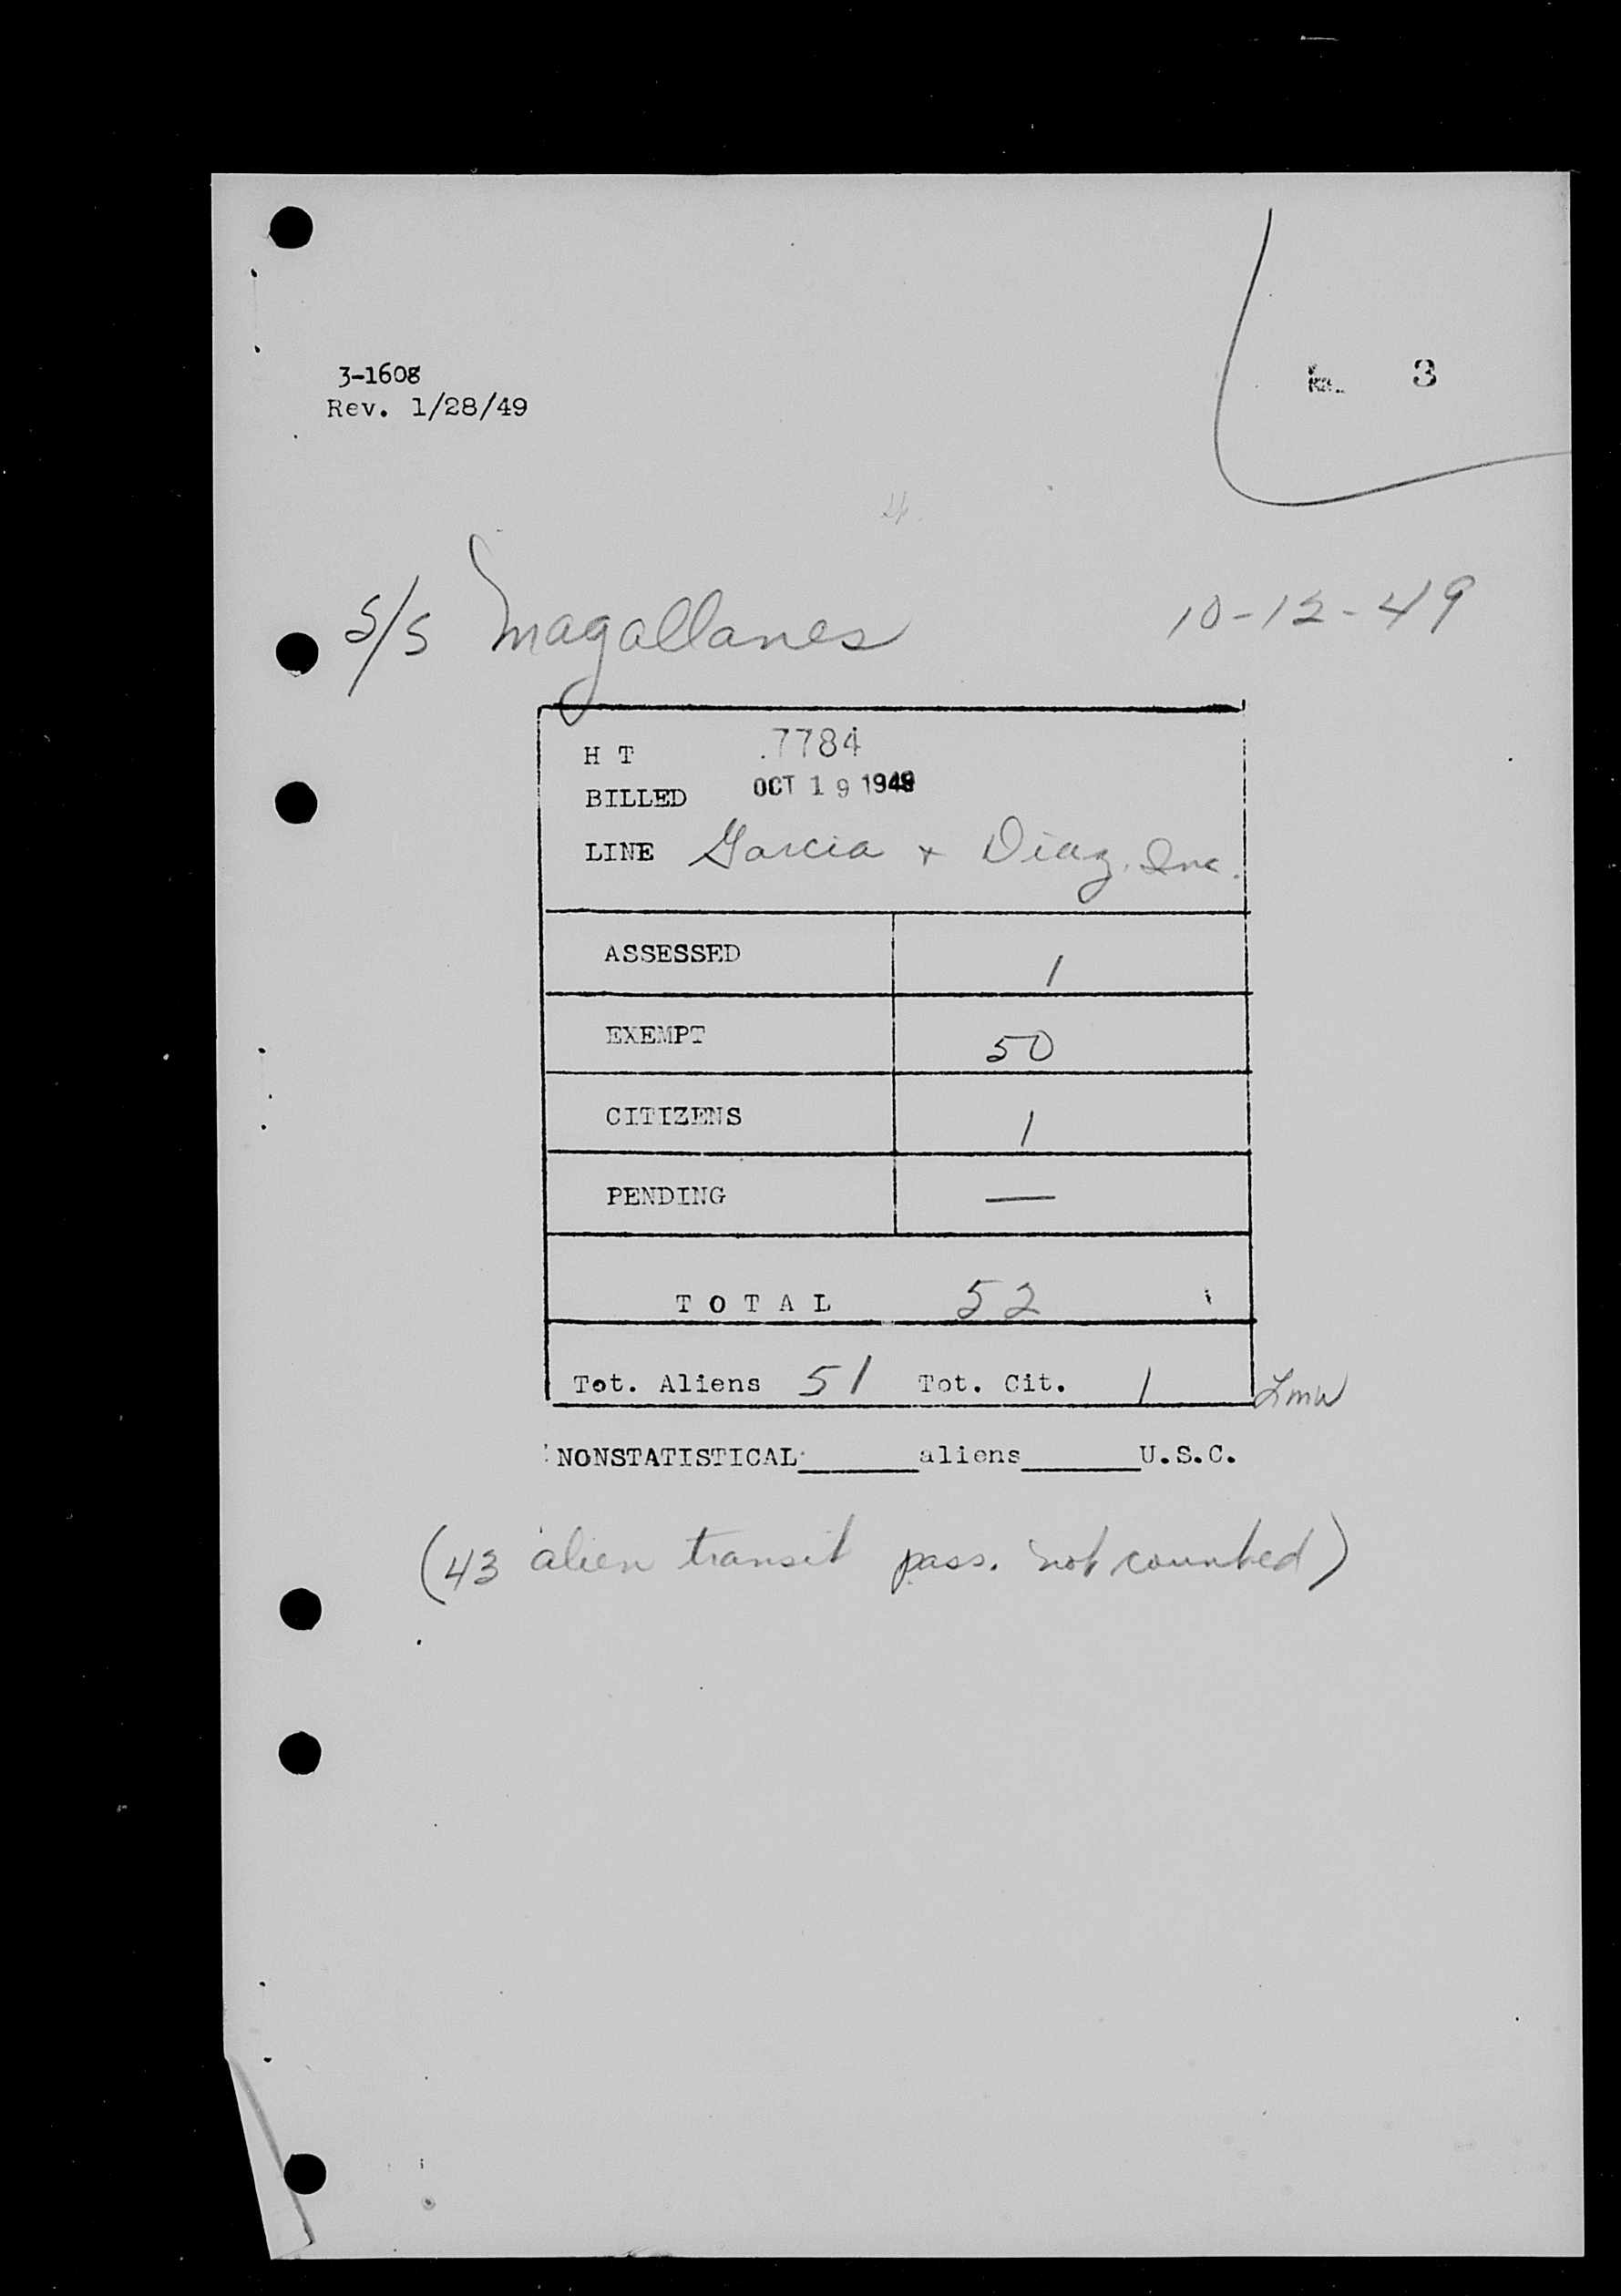 3-1608
Rev. 1/28/49
No. 3
S/S Magallanes 10-12-49
H T 7784
BILLED OCT 19 1949
LINE Garcia + Diaz. Inc.
ASSESSED 1
EXEMPT 50
CITIZENS 1
PENDING —
TOTAL 52
Tot. Aliens 51 Tot. Cit. 1 Lmw
NONSTATISTICAL______aliens______U.S.C.
(43 alien transit pass. not counted)